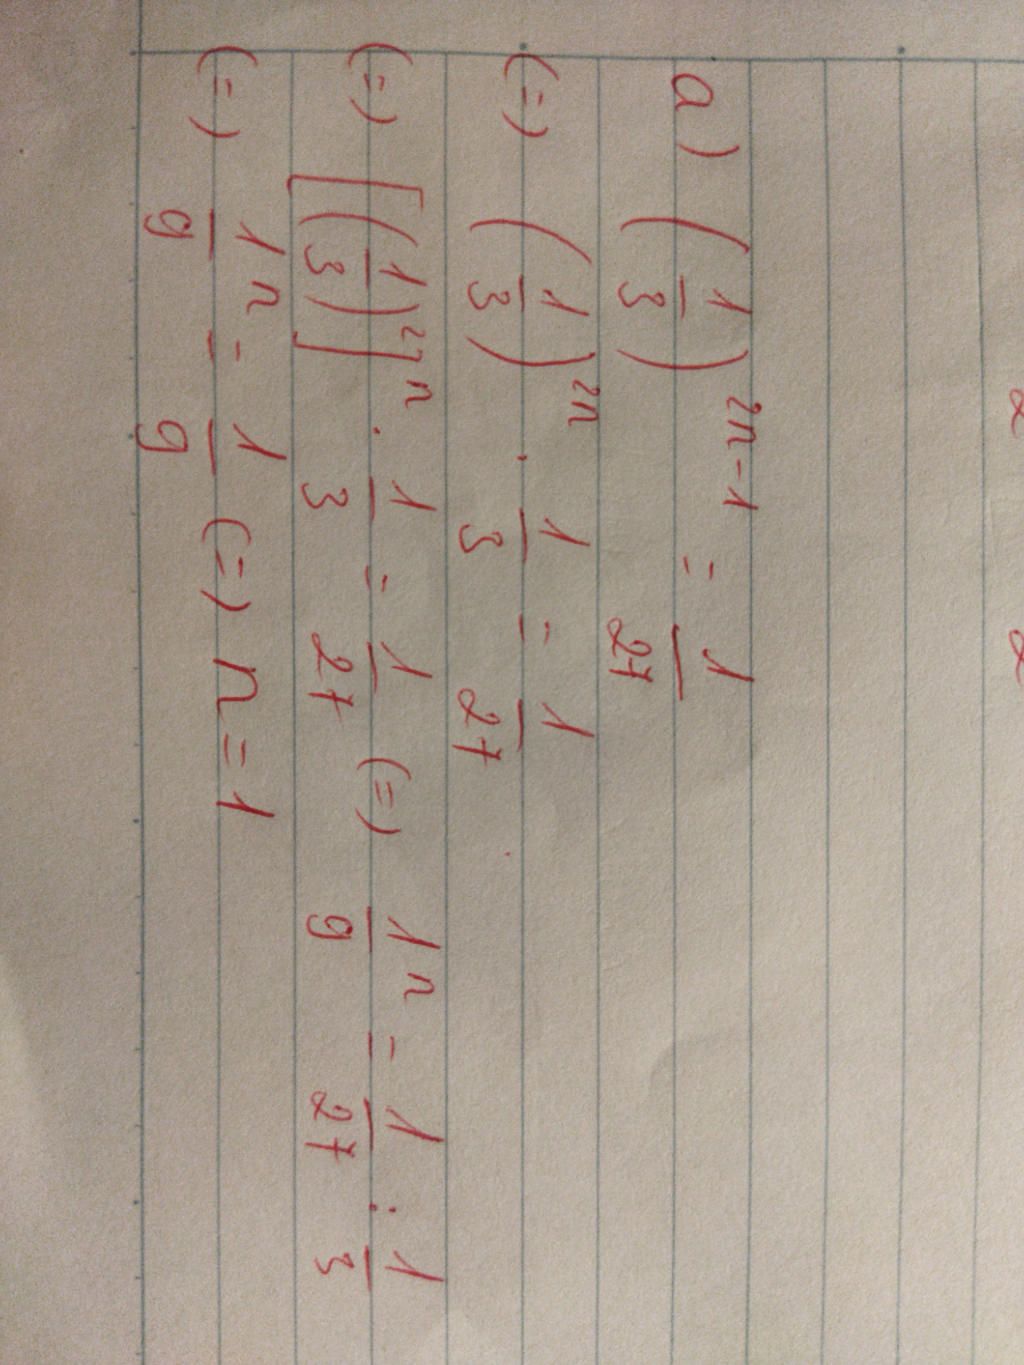 a) (1/3)^2n-1 = 1/27
(=) (1/3)^2n . 1/3 = 1/27
(=) [(1/3)^2]^n . 1/3 = 1/27 (=) 1/9^n = 1/27 : 1/3
(=) 1/9^n = 1/9 (=) n = 1